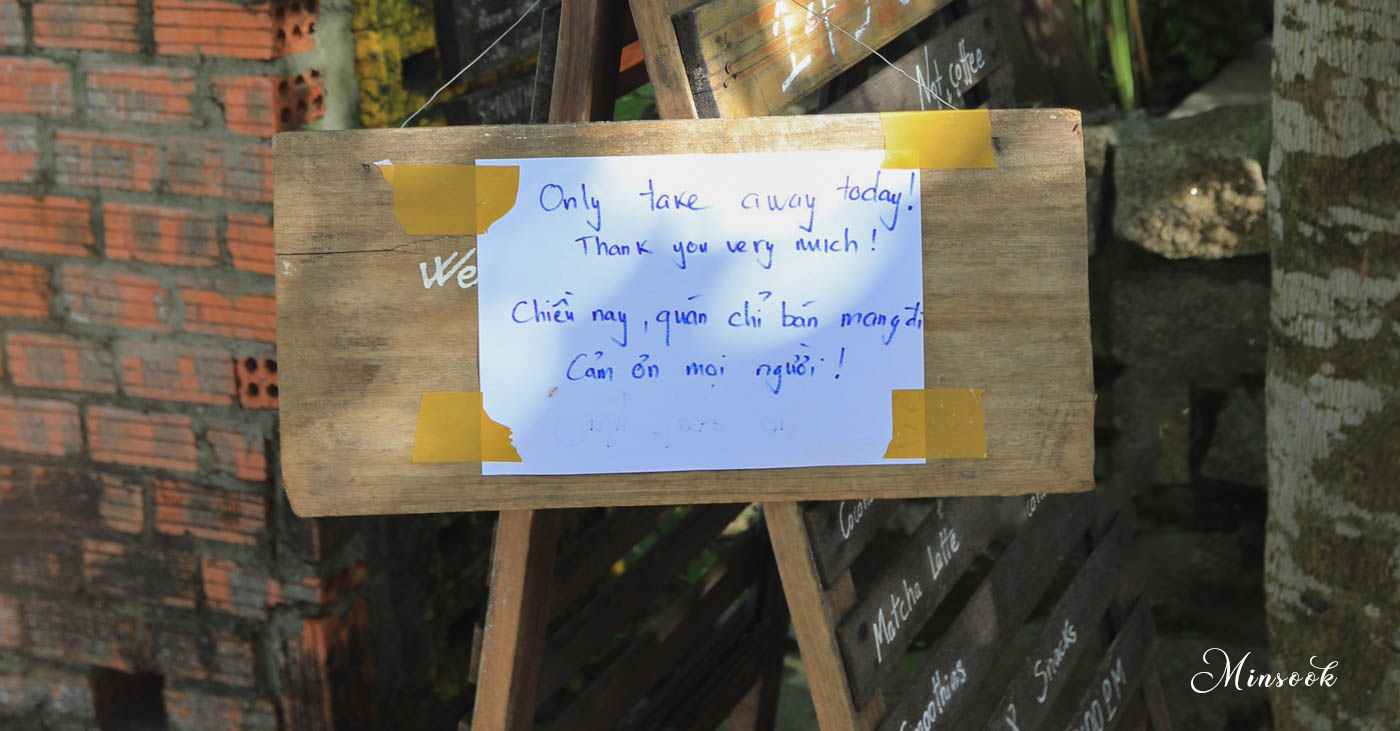 Hot coffee
We
Only take away today!
Thank you very much!
Chiều nay, quán chỉ bán mang đi
Cảm ơn mọi người!
Matcha Latte
Smoothies
Snacks
Minsook